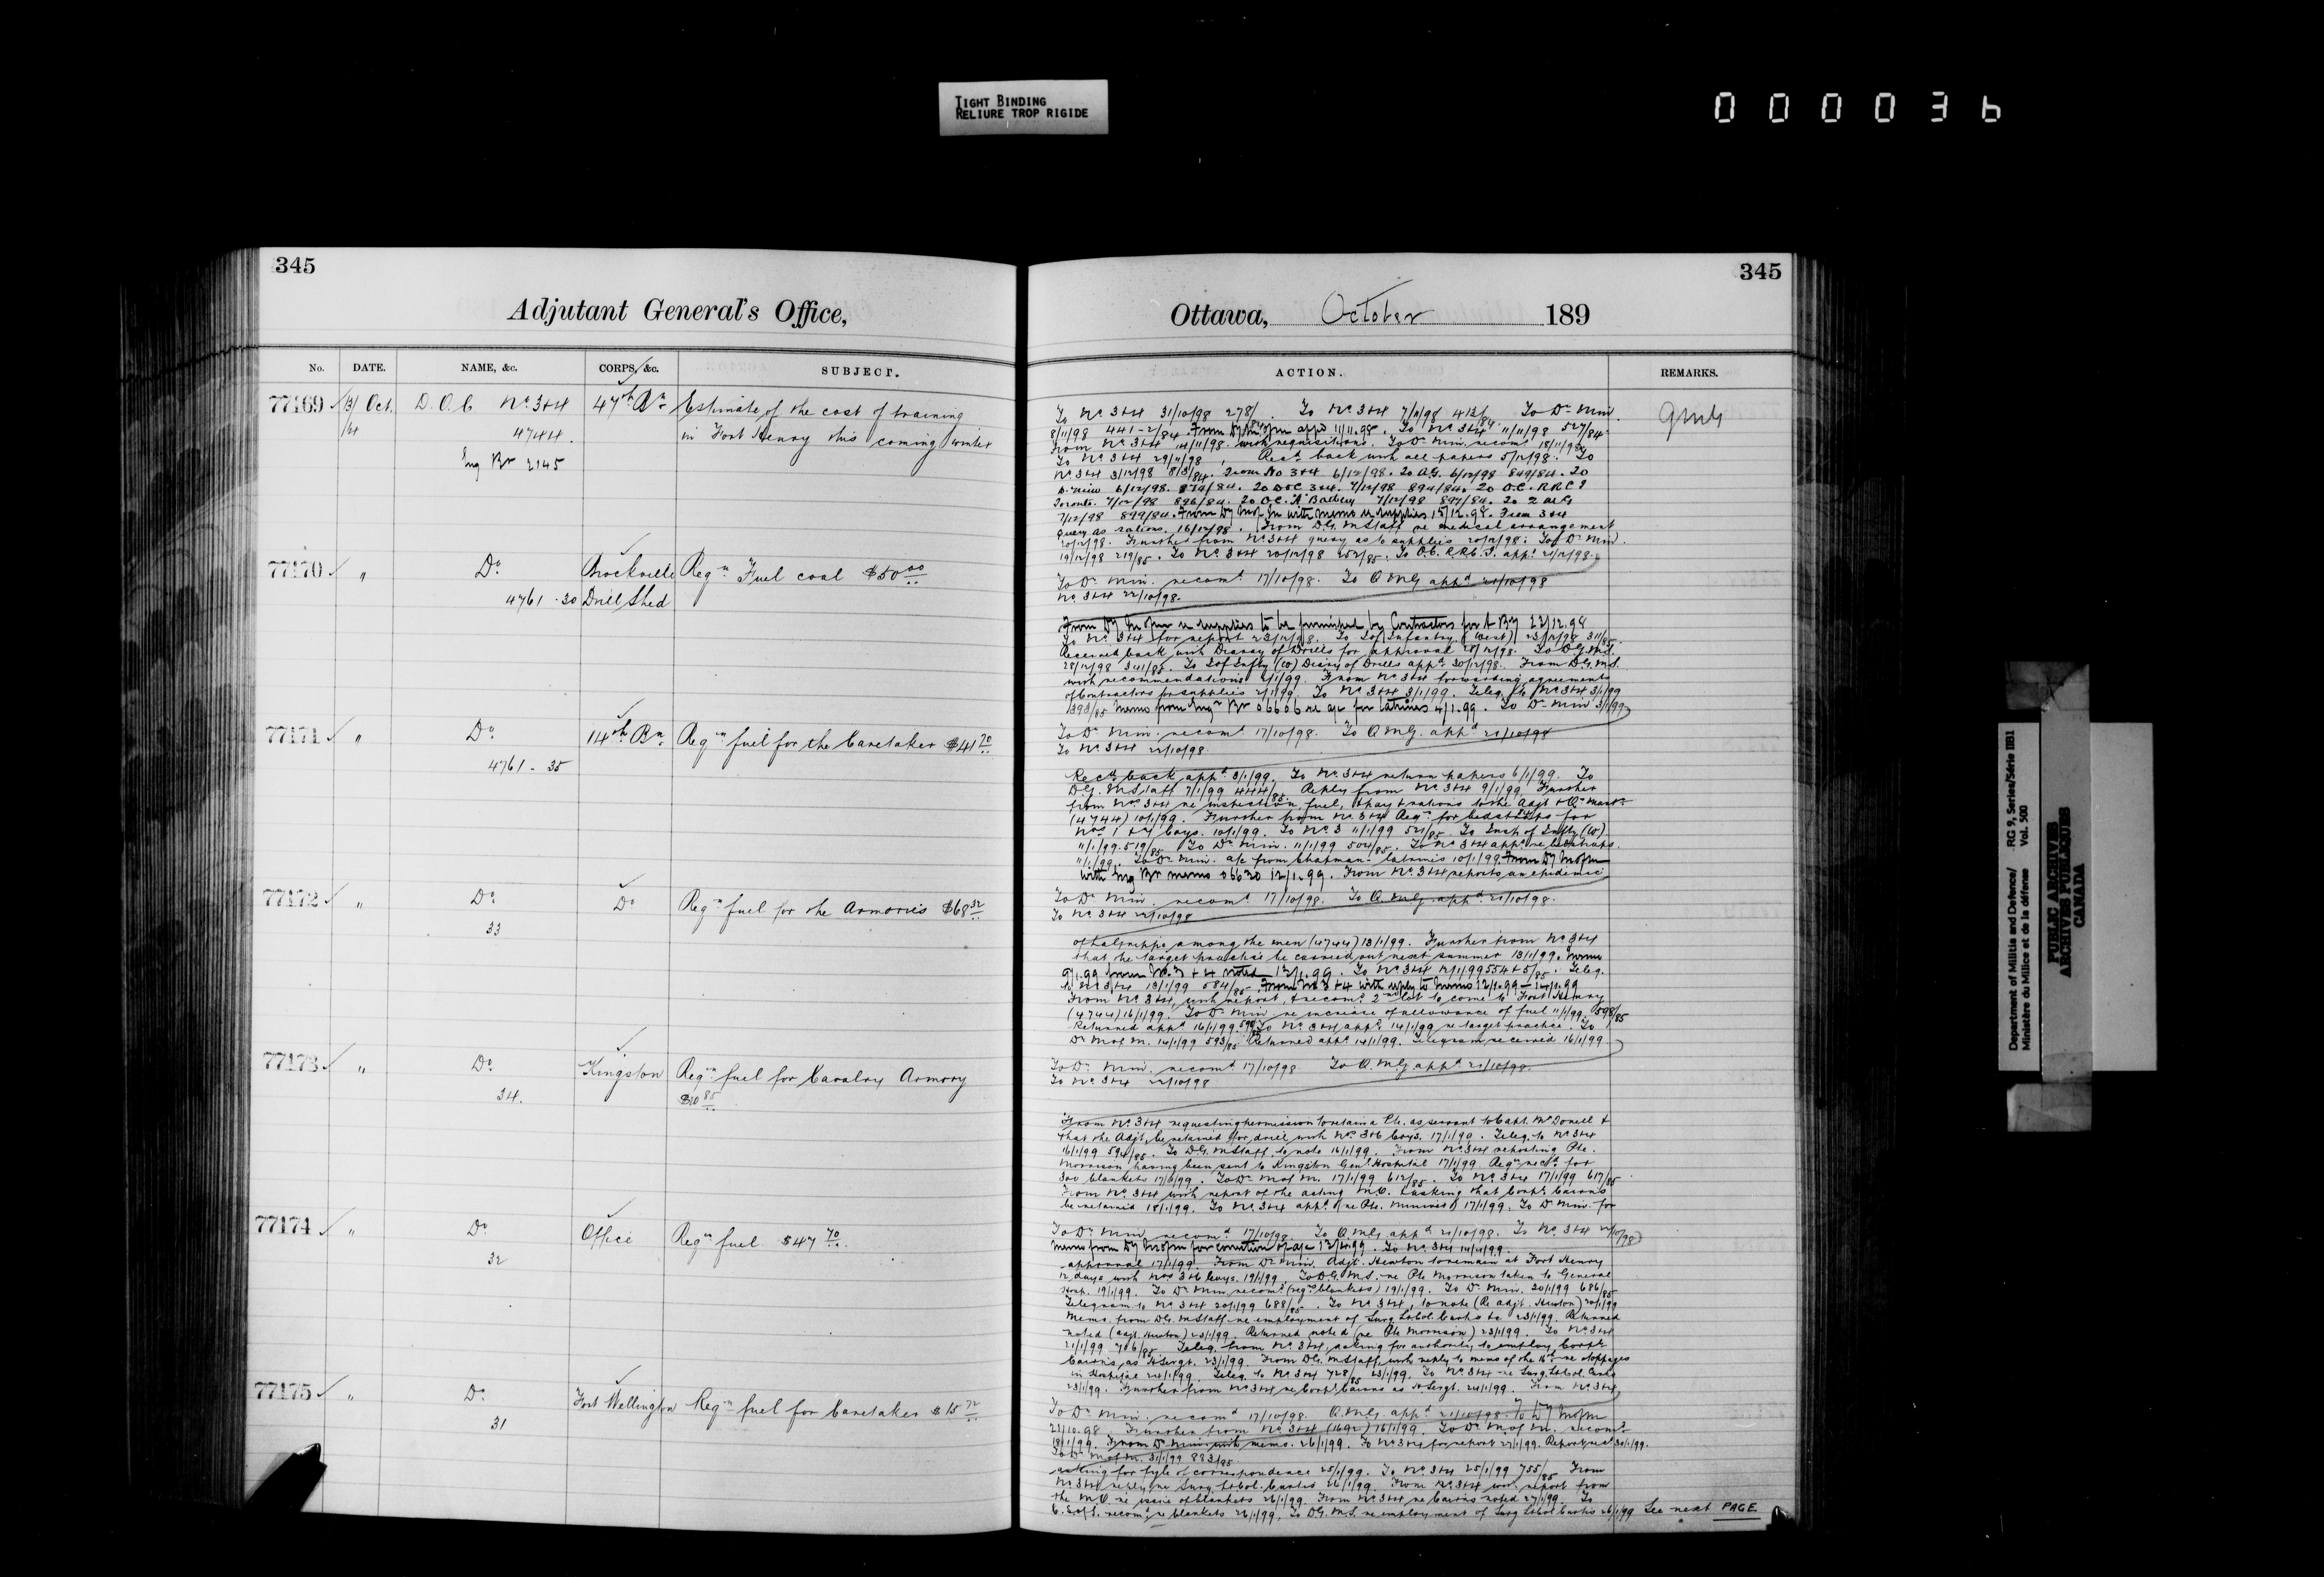 TIGHT BINDING
RELIURE TROP RIGIDE
000036
345
Adjutant General's Office,
No. DATE. NAME, &c. CORPS, &c. SUBJECT.
77169 13/ Oct. D.O.C No. 3+4 47th Bn Estimate of the cost of training
/4 4744. in Fort Henry this coming winter
Eng Br 2145
77170 " Do Brockville Reqn Fuel coal $50 00
4761 - 30 Drill Shed
77171 " Do 14th Bn Reqn fuel for the Caretaker $41 70
4761 - 35
77172 " Do Do Reqn fuel for the Armories $68 32
33
77173 " Do Kingston Reqn fuel for Cavalry Armory
34. $10 85
77174 " Do Office Reqn fuel $47 70
32
77175 " Do Fort Wellington Reqn fuel for Caretaker $15 72
31
345
Ottawa, October 189
ACTION. REMARKS.
To No. 3+4 31/10/98 278/ . To No. 3+4 7/11/98 413/84 To Dr Min
8/11/98 441-2/84. appd 11/11.98. To No. 3+4 11/11/98 527/84.
From No. 3+4 14/11/98. with requisitions. To Dr Min. recomd 18/11/98
To No. 3+4 29/11/98, Recd back with all papers 5/12/98. To
No. 3+4 3/12/98 From No 3+4 6/12/98. To A.G. 6/12/98 849/84. To
D. Min 6/12/98. 874/84. To DOC 3+4. 7/12/98 894/84. To O.C. RRCI
Toronto. 7/12/98 896/84. To O.C. "A" Battery 7/12/98 897/84. To
7/12/98 899/84. with memo re supplies 15/12.98. From 3+4
query as rations. 16/12/98. From D.G. M Staff re medical arrangement
20/12/98. Further from No. 3+4 query as to supplies 20/12/98. To Dr Min.
19/12/98 219/85. To No. 3+4 20/12/98 252/85. To O.C. R.R.C.I. appd 21/12/98.
To Dr Min. recomd 17/10/98. To Q.M.G appd 21/10/98
No. 3+4 22/10/98.
re supplies to be furnished by Contractors for A By 22/12.98
To No. 3+4 for report 23/12/98. To I of Infantry (West) 23/12/98 311/85.
Received back with Diary of Drills for approval 28/12/98. To D.G.M.S.
28/12/98 341/85. To I of Infty (W) Diary of Drills appd 30/12/98. From D.G.M.S.
with recommendations 2/1/99. From No. 3+4 forwarding agreements
of Contractors for supplies 2/1/99. To No. 3+4 3/1/99. Teleg. to No. 3+4 3/1/99
393/85 Memo from Engr Br 06606 re a/c for latrines 4/1.99. To Dr Min 3/1/99
To Dr Min. recomd 17/10/98. To Q.M.G. appd 21/10/98
To No. 3+4 22/10/98.
Recd back appd 3/1/99. To No. 3+4 return papers 6/1/99. To
D.G. M Staff 7/1/99 444/85. Reply from No. 3+4 9/1/99 Further
from No. 3+4 re inspection, fuel, + pay + rations to the Adjt + Qr Mastr
(4744) 10/1/99. Further from No. 3+4 Reqn for bedstraps for
Nos 1 + 7 Coys. 10/1/99. To No. 3 11/1/99 521/85. To Insp of Infty (W)
11/1/99. 519/85 To Dr Min. 11/1/99 504/85. To No. 3+4 appd re bedstraps.
11/1/99. To Dr Min. a/c from Chapman latrines 10/1/99.
with Eng Br memo 06630 12/1.99. From No. 3+4 reports an epidemic
To Dr Min. recomd 17/10/98. To Q.M.G. appd 21/10/98.
To No. 3+4 22/10/98
of la grippe among the men (4744) 13/1/99. Further from No. 3+4
that the target practice be carried out next summer 13/1/99.
9/1.99 from No. 3+4 noted 12/1.99. To No. 3+4 12/1/99 554+5/85. Teleg.
to No. 3+4 13/1/99 584/85. From No 3+4 with reply to memo 12/1.99 - 14/1.99
From No. 3+4, with report, + recomd 2nd lot to come to Fort Henry
(4744) 16/1/99. To Dr Min re increase of allowance of fuel 11/1/99. 598/85
Returned appd 16/1/99. To No. 3+4 appd 14/1/99 re target practice. To
Dr M of M. 14/1/99 593/85. Returned appd 14/1/99. Telegram received 16/1/99
To Dr Min. recomd 17/10/98 To Q.M.G. appd 21/10/98.
To No. 3+4 22/10/98
From No. 3+4 requesting permission to retain a Pte. as servant to Capt. McDonell +
that the Adjt, be retained for drill with Nos 3+6 Coys. 17/1/99. Teleg. to No 3+4
16/1/99 594/85. To D.G. M Staff to note 16/1/99. From No. 3+4 reporting Pte.
Morrison having been sent to Kingston Genl Hospital 17/1/99. Reqn recd for
300 blankets 17/1/99. To Dr M of M. 17/1/99 612/85. To No. 3+4 17/1/99 617/85.
From No. 3+4 with report of the acting M.O. + asking that Corpl Cairns
be retained 18/1/99. To No. 3+4 appd (re Pte. ) 17/1/99. To Dr Min. for
To Dr Min recomd 17/10/98. To Q.M.G appd 21/10/98. To No. 3+4 22/10/98
for correction of a/c To No. 3+4
approval 17/1/99. From Dr Min. Adjt. Hewton to remain at Fort Henry
12 days with Nos 3+6 Coys. 19/1/99. To D.G. M.S. re Pte Morrison taken to General
Hosp. 19/1/99. To Dr Min, recomd (reqn blankets) 19/1/99. To Dr Min. 20/1/99 686/85
Telegram to No. 3+4 20/1/99 688/85. To No. 3+4, to note (Re Adjt. Hewton) 20/1/99
Memo. from D.G. M Staff re employment of Surg. Lt Col. 23/1/99. Returned
noted (Adjt. Hewton) 23/1/99. Returned noted (re Pte Morrison) 23/1/99. To No. 3+4
21/1/99 706/85. Teleg. from No. 3+4, asking for authority to employ Corpl
Cairns, as H. Sergt. 23/1/99. From D.G. M Staff, with reply to memo of the 16th re stoppages
in Hospital 24/1/99. Teleg. to No. 3+4 728/85 23/1/99. To No. 3+4 re Surg. Lt Col.
23/1/99. Further from No. 3+4 re Corpl Cairns as H. Sergt. 24/1/99. From No. 3+4
To Dr Min. recomd 17/10/98. Q.M.G. appd 21/10/98. To
22/10.98 Further from No. 3+4 (1692) 16/1/99. To Dr M of M. recomd
18/1/99. From Dr Min with memo. 26/1/99. To No 3+4 for report 27/1/99. Report recd 30/1/99.
To Dr M of M. 31/1/99 883/85
asking for fyle of correspondence 25/1/99. To No. 3+4 25/1/99 755/85 From
No. 3+4 reply re Surg. Lt Col. 26/1/99. From No. 3+4 with report from
the M.O. re issue of blankets 26/1/99. From No. 3+4 re Cairns noted 27/1/99. To
recomd re blankets 26/1/99. To D.G. M.S. re employment of Surg Lt Col 26/1/99 See next PAGE
QMG
Department of Militia and Defence/ RG 9, Series/Série IIB1
Ministère du Milice et de la défense Vol. 500
PUBLIC ARCHIVES
ARCHIVES PUBLIQUES
CANADA